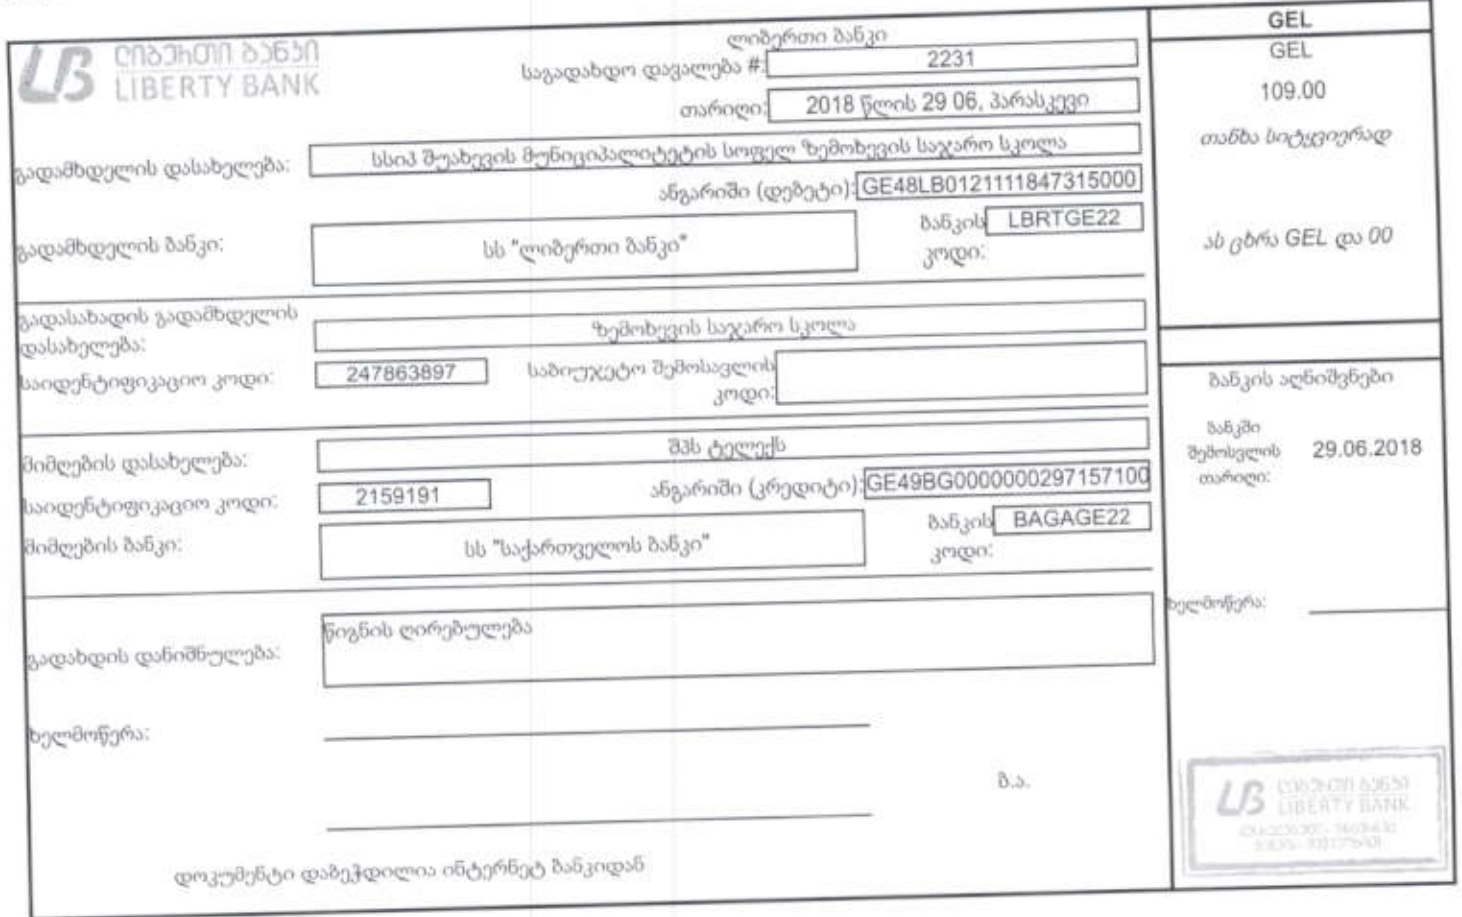 ლიბერთი ბანკი
LIBERTY BANK
ლიბერთი ბანკი
საგადახდო დავალება #: 2231
თარიღი: 2018 წლის 29 06, პარასკევი
გადამხდელის დასახელება: სსიპ შუახევის მუნიციპალიტეტის სოფელ ზემოხევის საჯარო სკოლა
ანგარიში (დებეტი): GE48LB0121111847315000
გადამხდელის ბანკი: სს "ლიბერთი ბანკი" ბანკის კოდი: LBRTGE22
გადასახადის გადამხდელის
დასახელება: ზემოხევის საჯარო სკოლა
საიდენტიფიკაციო კოდი: 247863897 საბიუჯეტო შემოსავლის
კოდი:
მიმღების დასახელება: შპს ტელექს
საიდენტიფიკაციო კოდი: 2159191 ანგარიში (კრედიტი): GE49BG0000000297157100
მიმღების ბანკი: სს "საქართველოს ბანკი" ბანკის კოდი: BAGAGE22
გადახდის დანიშნულება: წიგნის ღირებულება
ხელმოწერა:
ბ.ა.
დოკუმენტი დაბეჭდილია ინტერნეტ ბანკიდან
GEL
GEL
109.00
თანხა სიტყვიერად
ას ცხრა GEL და 00
ბანკის აღნიშვნები
ბანკში
შემოსვლის 29.06.2018
თარიღი:
ხელმოწერა:
ლიბერთი ბანკი
LIBERTY BANK